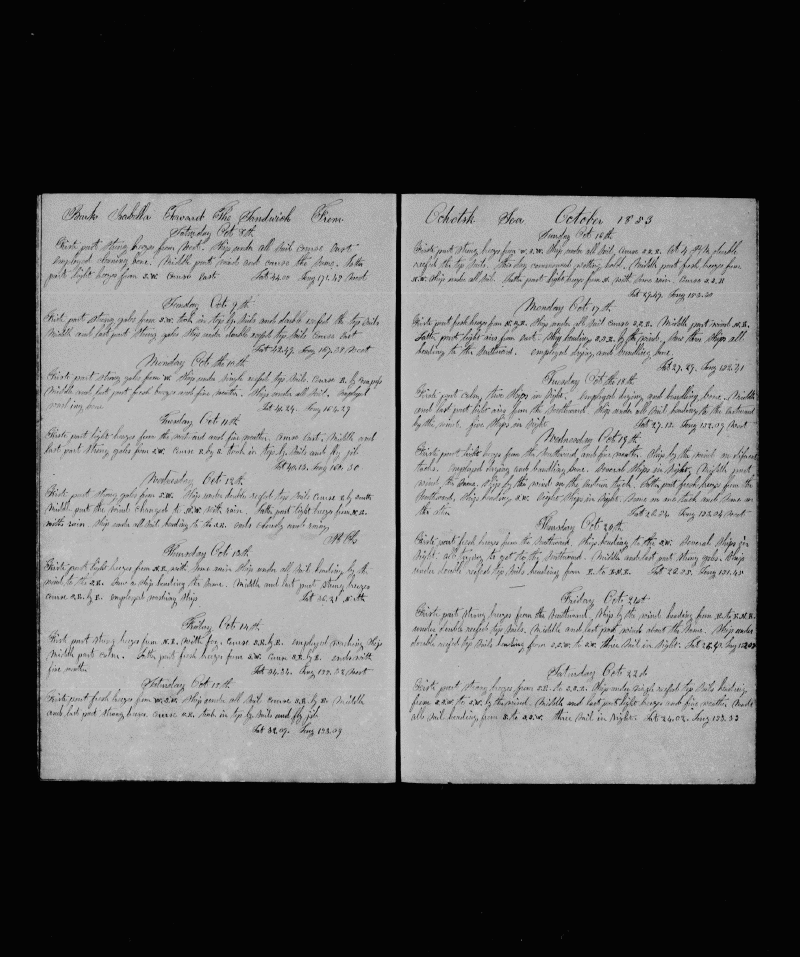 Bark Isabella Toward The Sandwich From
Saturday Oct 8th
First part strong breezes from West. Ship under all sail course East
employed cleaning bone. Middle part wind and course the same. Latter
part light breezes from S.W. course East Lat 44.00 Long 171.42 West
Sunday Oct 9th
First part strong gales from S.W. took in top g. sails and double reefed the top sails
Middle and last part strong gales ship under double reefed top sails course East
Lat 42.47 Long 167.08 West
Monday Oct the 10th
First part strong gales from W. Ship under single reefed top sails. Course E. by
Middle and last part fresh breezes and fine weather. Ship under all sail. Employed
washing bone Lat 41.24 Long 164.27
Tuesday Oct 11th
First part light breezes from the west and fine weather. Course East. Middle and
last part strong gales from S.W. course E by S took in top g. sails and fly jib
Lat 40.13 Long 160.50
Wednesday Oct 12th
First part strong gales from S.W. Ship under double reefed top sails course E by South
Middle part the wind changed to N.W. with rain. Latter part light breezes from N.E.
with rain. Ship under all sail heading to the S.E. ends cloudy and rainy
Thursday Oct 13th
First part light breezes from N.E. with some rain Ship under all sail heading by the
wind to the S.E. saw a ship heading the same. Middle and last part strong breezes
course S.E. by E. employed washing ship
Friday Oct 14th
First part strong breezes from N.E. with fog. Course S.E. by E. employed washing ship
Middle part calm. Latter part fresh breezes from S.W. Course S.E. by E. ends with
fine weather Lat 34.34 Long West
Saturday Oct 15th
First part fresh breezes from W.S.W. Ship under all sail course S.E. by E. Middle
and last part strong breezes course S.E. took in top g. sails and fly jib
Lat 32.07 Long 153.09
Ochotsk Sea October 1853
Sunday Oct 16th
First part strong breezes from W.S.W. Ship under all sail course S.S.E. at 4 P.M. double
reefed the top sails. Steerboat getting hold. Middle part fresh breezes from
N.W. Ship under all sail. Latter part light breezes from N. with some rain. Course S.S.E
Lat 29.47 Long 152.30
Monday Oct 17th
First part fresh breezes from N.E. Ship under all sail course S.S.E. Middle part wind N.E.
Latter part light airs from East. Ship heading S.S.E. by the wind. Saw three ships all
heading to the Southward. Employed drying and bundling bone
Lat 27.27 Long 152.21
Tuesday Oct the 18th
First part calm, two ships in sight. Employed drying and bundling bone. Middle
and last part light airs from the Southward. Ship under all sail heading to the Eastward
by the wind. five ships in sight Lat 27.12 Long 152.07 West
Wednesday Oct 19th
First part light breezes from the Southward and fine weather. Ship by the wind on different
tacks. Employed drying and bundling bone. Several ships in sight. Middle part
wind the same. Ship by the wind on the eastern tack. Latter part fresh breezes from the
Southward. Ship heading S.W. Eight ships in sight. Some on one tack and some on
the other Lat 26.54 Long 152.04 West
Thursday Oct 20th
First part fresh breezes from the Southward. Ship heading to the S.W. Several ships in
sight all trying to get to the Southward. Middle and last part strong gales. Ship
under double reefed top sails heading from E. to E.N.E. Lat 26.05 Long 151.45
Friday Oct 21st
First part strong breezes from the Southward, Ship by the wind heading from E. to E.N.E.
under double reefed top sails. Middle and last part winds about the same. Ship under
double reefed top sails heading from S.S.W. to S.W. three sail in sight. Lat 25.42 Long
Saturday Oct 22d
First part strong breezes from S.E. to S.S.E. Ship under single reefed top sails heading
from S.S.W. to S.W. by the wind. Middle and last part light breezes and fine weather. Made
all sail heading from S. to S.S.W. three sail in sight. Lat 24.02 Long 153.33